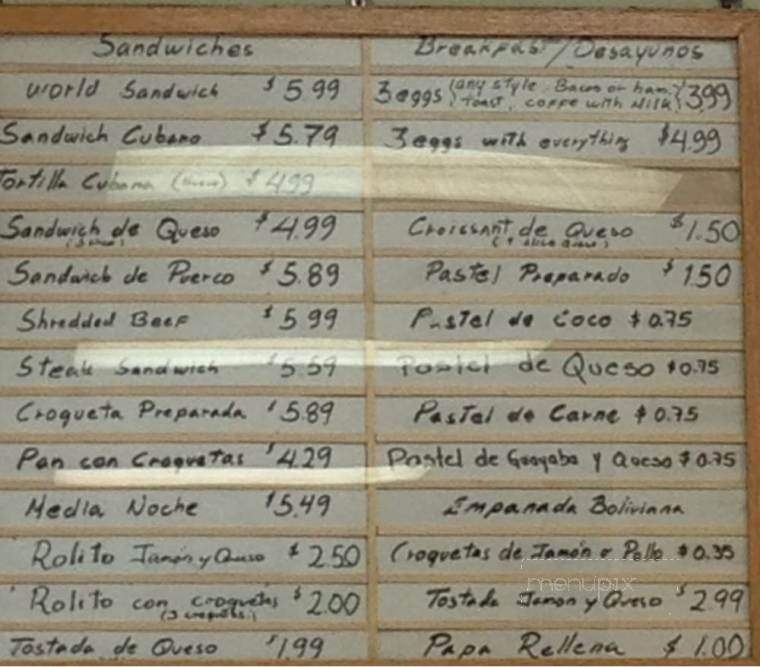 Sandwiches
World Sandwich $ 5.99
Sandwich Cubano $ 5.79
Tortilla Cubana $ 4.99
Sandwich de Queso $ 4.99
Sandwich de Puerco $ 5.89
Shredded Beef $ 5.99
Steak Sandwich $ 5.59
Croqueta Preparada $ 5.89
Pan con Croquetas $ 4.29
Media Noche $ 5.49
Rolito Jamón y Queso $ 2.50
Rolito con croquetas $ 2.00
(3 croquetas)
Tostada de Queso $ 1.99
Breakfast/Desayunos
3 eggs (any style. Bacon or ham, 3.99
toast, coffe with Milk)
3 eggs with everything $4.99
Croissant de Queso $ 1.50
Pastel Preparado $ 1.50
Pastel de Coco $ 0.75
Pastel de Queso $ 0.75
Pastel de Carne $ 0.75
Pastel de Guayaba y Queso $ 0.75
Empanada Boliviana
Croquetas de Jamón o Pollo $ 0.35
Tostada Jamon y Queso $ 2.99
Papa Rellena $ 1.00
menupix